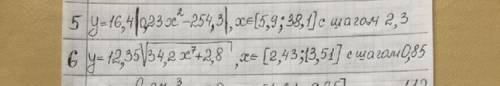 5 y=16,4|0,23x²-254,3|, x∈[5,9;38,1] с шагом 2,3
6 y=12,35√34,2x⁷+2,8, x=[2,43;[3,51] с шагом 0,85